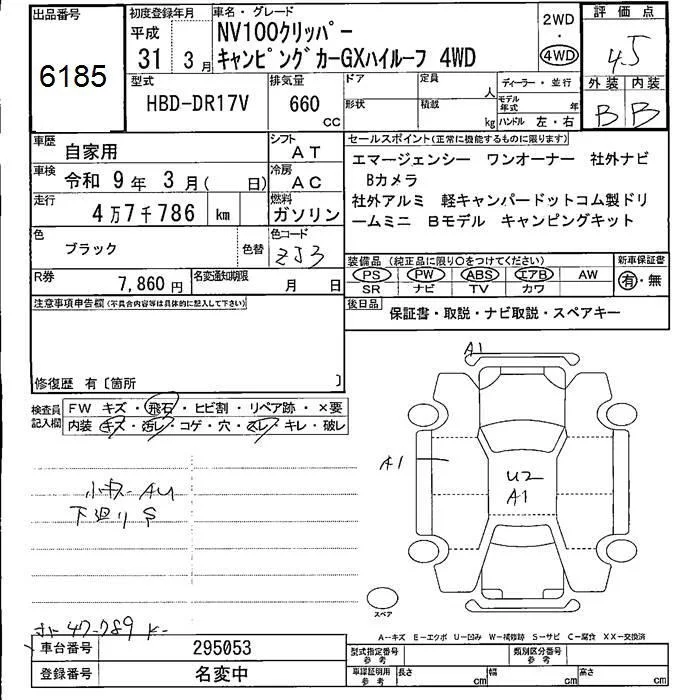 出品番号
6185
初度登録年月
平成
31 3月
車名・グレード
NV100クリッパー
キャンピングカーGXハイルーフ 4WD
2WD
・
4WD
評価点
4.5
外装 内装
B B
型式
HBD-DR17V
排気量
660
cc
ドア
定員
人
形状
積載
kg
ディーラー・並行
モデル年式 年
ハンドル 左・右
車歴
自家用
シフト
AT
車検
令和 9年 3月( 日)
冷房
AC
走行
4万7千786 km
燃料
ガソリン
色
ブラック
色替
色コード
ZJ3
R券
7,860円
名変通知期限
月 日
セールスポイント(正常に機能するものに限ります)
エマージェンシー ワンオーナー 社外ナビ
Bカメラ
社外アルミ 軽キャンパードットコム製ドリ
ームミニ Bモデル キャンピングキット
装備品 (純正品に限り〇をつけてください)
PS PW ABS エアB AW
SR ナビ TV カワ
新車保証書
有・無
後日品
保証書・取説・ナビ取説・スペアキー
注意事項申告欄(不具合内容等は具体的に記入して下さい)
修復歴 有〔箇所 〕
検査員
記入欄
FW キズ・飛石・ヒビ割・リペア跡・×要
内装・キズ・汚レ・コゲ・穴・スレ・キレ・破レ
小キズ AU
下廻り S
47-789 K-
A1
A1
U2
A1
スペア
A-キズ E-エクボ U-凹み W-補修跡 S-サビ C-腐食 XX-交換済
車台番号
295053
登録番号
名変中
型式指定番号
参考
類別区分番号
参考
車庫証明用
参考
長さ cm
幅 cm
高さ cm